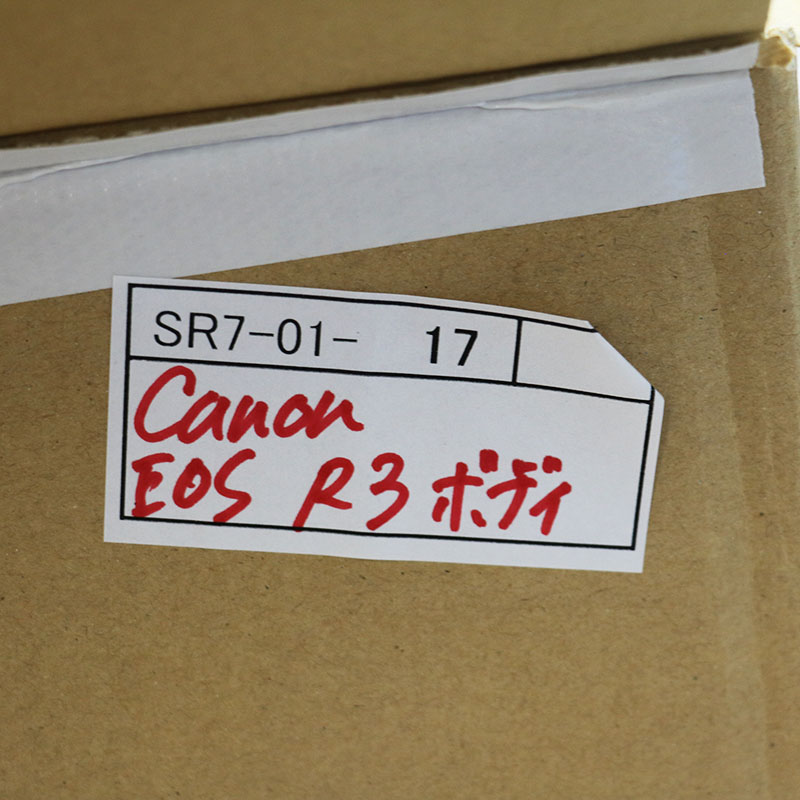 SR7-01- 17
Canon
EOS R3 ボディ